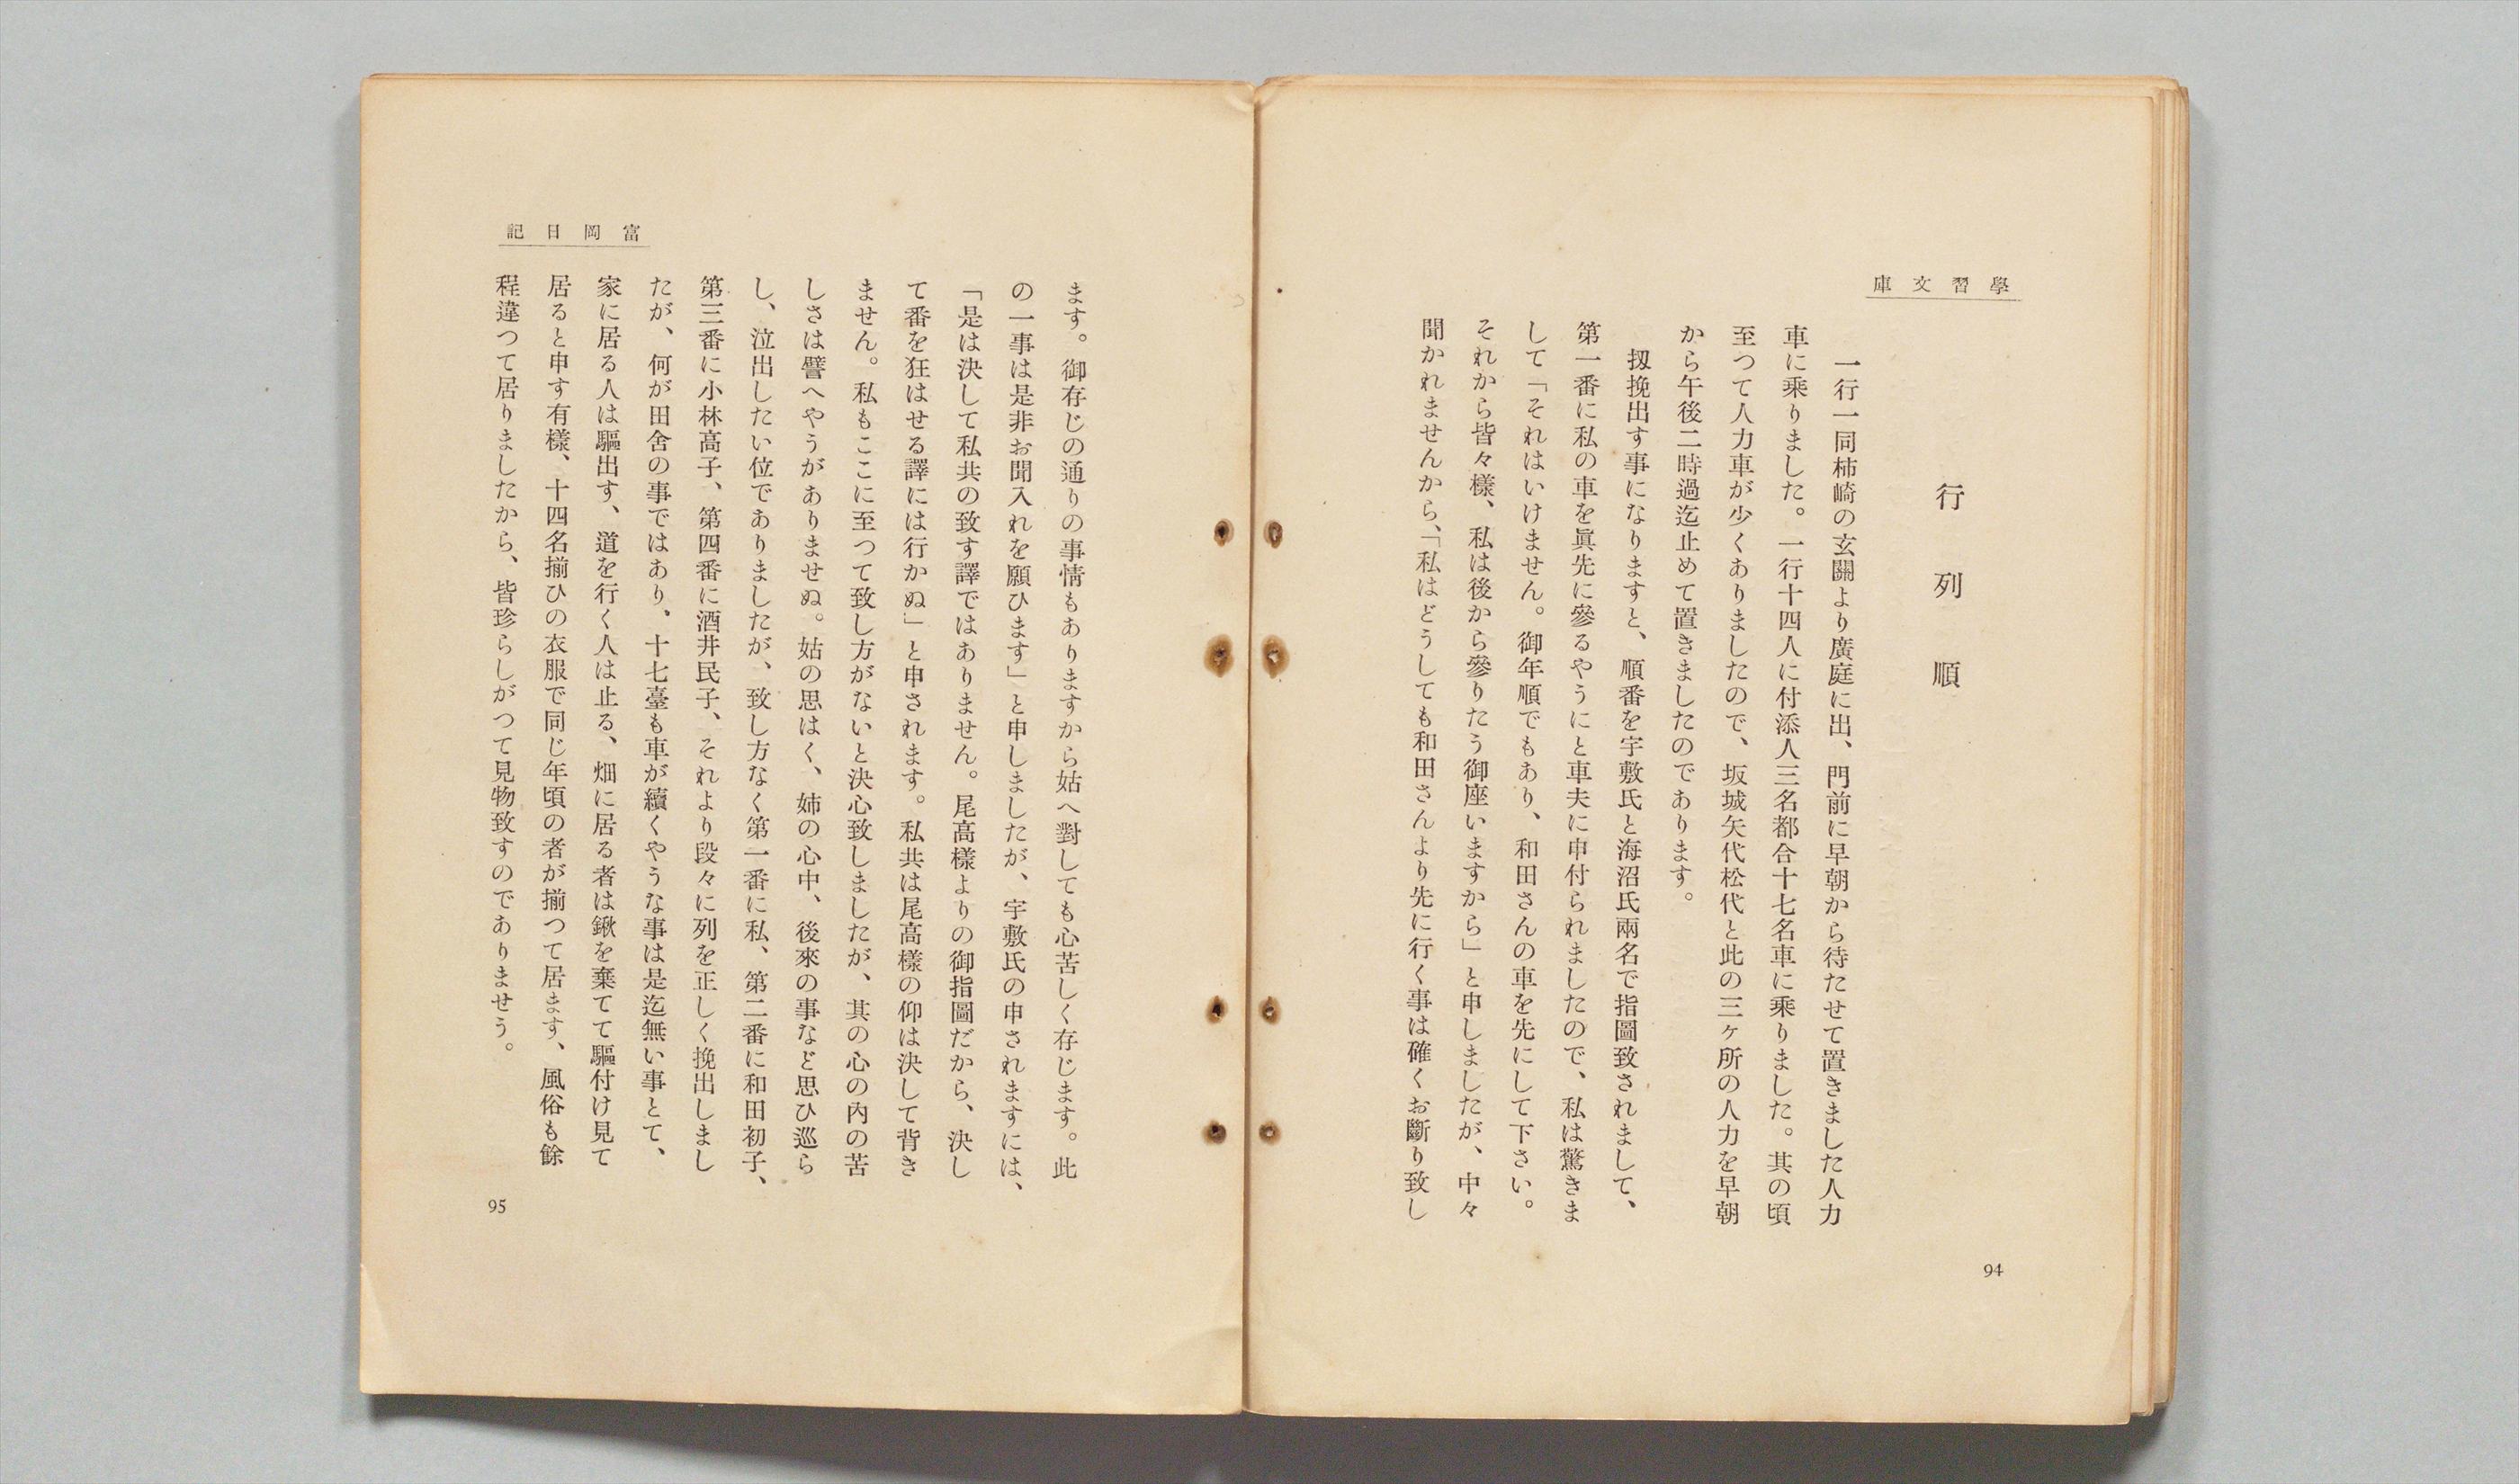 學習文庫
行列順
一行一同柿崎の玄關より廣庭に出、門前に早朝から待たせて置きました人力
車に乘りました。一行十四人に付添人三名都合十七名車に乘りました。其の頃
至つて人力車が少くありましたので、坂城矢代松代と此の三ヶ所の人力を早朝
から午後二時過迄止めて置きましたのであります。
扱挽出す事になりますと、順番を宇敷氏と海沼氏兩名で指圖致されまして、
第一番に私の車を眞先に參るやうにと車夫に申付られましたので、私は驚きま
して「それはいけません。御年順でもあり、和田さんの車を先にして下さい。
それから皆々樣、私は後から參りたう御座いますから」と申しましたが、中々
聞かれませんから、「私はどうしても和田さんより先に行く事は確くお斷り致し
94
富岡日記
ます。御存じの通りの事情もありますから姑へ對しても心苦しく存じます。此
の一事は是非お聞入れを願ひます」と申しましたが、宇敷氏の申されますには、
「是は決して私共の致す譯ではありません。尾高樣よりの御指圖だから、決し
て番を狂はせる譯には行かぬ」と申されます。私共は尾高樣の仰は決して背き
ません。私もここに至つて致し方がないと決心致しましたが、其の心の內の苦
しさは譬へやうがありませぬ。姑の思はく、姉の心中、後來の事など思ひ巡ら
し、泣出したい位でありましたが、致し方なく第一番に私、第二番に和田初子、
第三番に小林高子、第四番に酒井民子、それより段々に列を正しく挽出しまし
たが、何が田舍の事ではあり、十七臺も車が續くやうな事は是迄無い事とて、
家に居る人は驅出す、道を行く人は止る、畑に居る者は鍬を棄てて驅付け見て
居ると申す有樣、十四名揃ひの衣服で同じ年頃の者が揃つて居ます、風俗も餘
程違つて居りましたから、皆珍らしがつて見物致すのでありませう。
95